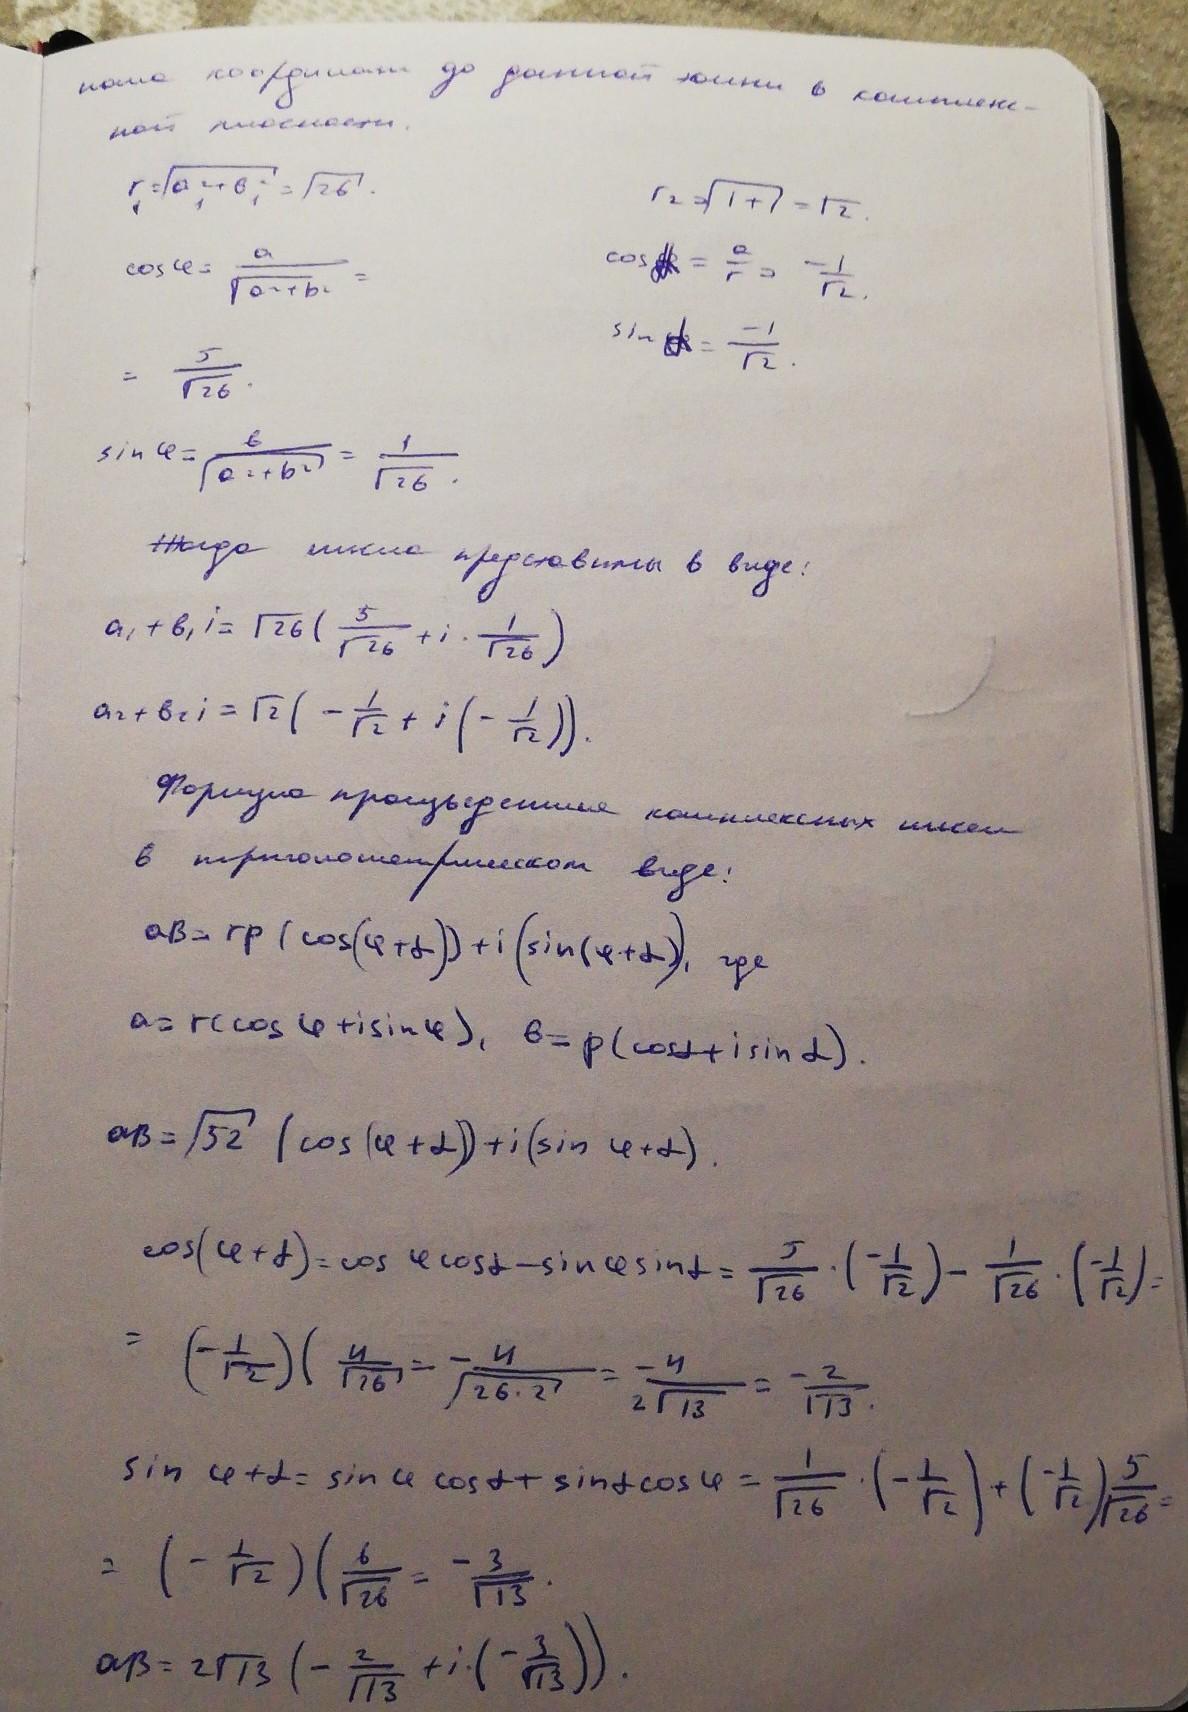 нала координат до данной точки в комплекс-
ной плоскости.
r₁=√(a₁²+b₁²)=√26.
r₂=√(1+1)=√2.
cosφ= a/√(a²+b²) =
cosα = a/r = -1/√2.
= 5/√26.
sinα = -1/√2.
sinφ= b/√(a²+b²) = 1/√26.
Тогда числа представимы в виде:
a₁+b₁i= √26( 5/√26 + i · 1/√26 )
a₂+b₂i = √2( - 1/√2 + i(- 1/√2)).
Формула произведения комплексных чисел
в тригонометрическом виде:
ab= rp (cos(φ+α))+i(sin(φ+α), где
a= r(cosφ+isinφ), b= p(cosα+isinα).
ab= √52 (cos(φ+α))+i(sin φ+α).
cos(φ+α)=cosφcosα-sinφsinα= 5/√26 · (-1/√2) - 1/√26 · (-1/√2)=
= (- 1/√2)( 4/√26 = - 4/√(26·2) = -4/2√13 = - 2/√13.
sin φ+α= sinφ cosα+ sinαcosφ = 1/√26 · (- 1/√2) + (-1/√2) 5/√26 =
= (- 1/√2)( 6/√26 = - 3/√13.
ab= 2√13 (- 2/√13 + i·(- 3/√13)).